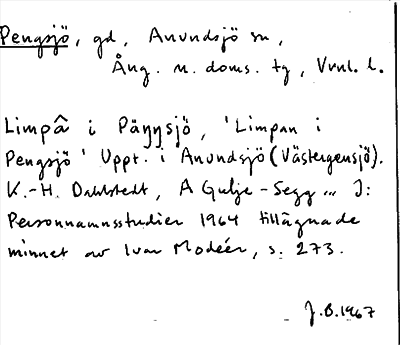 Pengsjö, gd, Anundsjö sn,
Ång. n. doms. tg, Vvnl. l.
Limpâ i Päŋŋsjö, 'Limpan i
Pengsjö' Uppt. i Anundsjö (Västergensjö).
K.-H. Dahlstedt, A Gulje-Segg ... I:
Personnamnsstudier 1964 tillägnade
minnet av Ivar Modéer, s. 273.
J.B. 1967